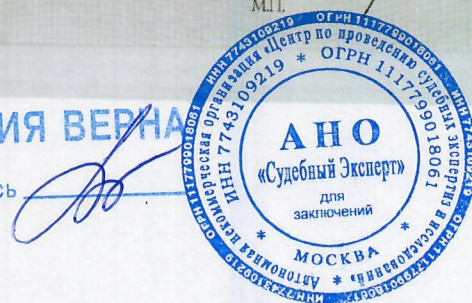 М.П.
ИЯ ВЕРНА
сь
ИНН 7743109219 ОГРН 1117799018061
Автономная некоммерческая организация «Центр по проведению судебных экспертиз и исследований» *
ИНН 7743109219 * ОГРН 1117799018061
АНО
«Судебный Эксперт»
для
заключений
* МОСКВА *